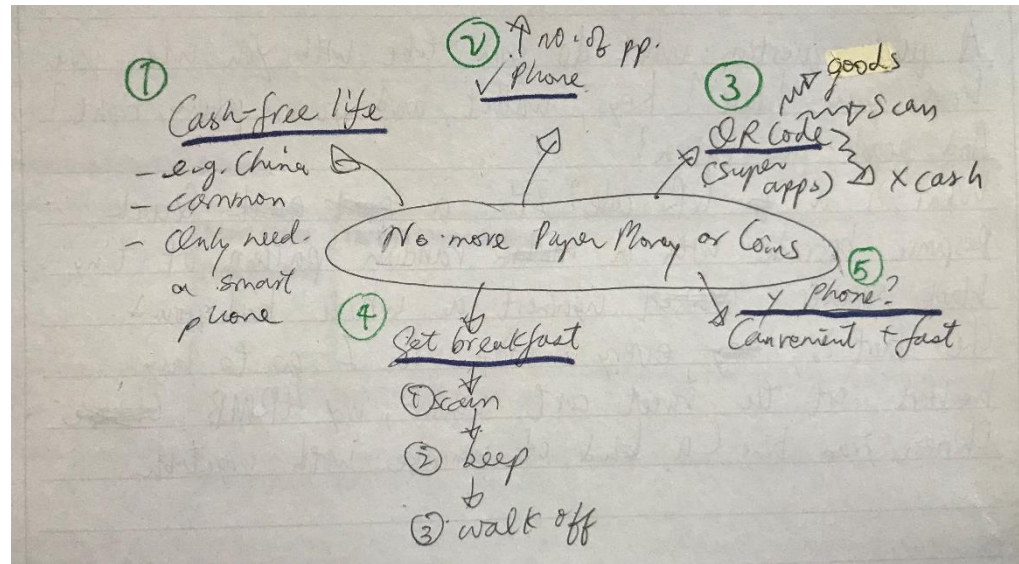 ①
Cash-free life
- e.g. China
- common
- Only need
a smart
phone
②
↑ no. of pp.
✓ Phone
③
QR Code
(super
apps)
goods
Scan
X cash
No more Paper Money or Coins
④
Get breakfast
① scan
② keep
③ walk off
⑤
y phone?
Convenient + fast